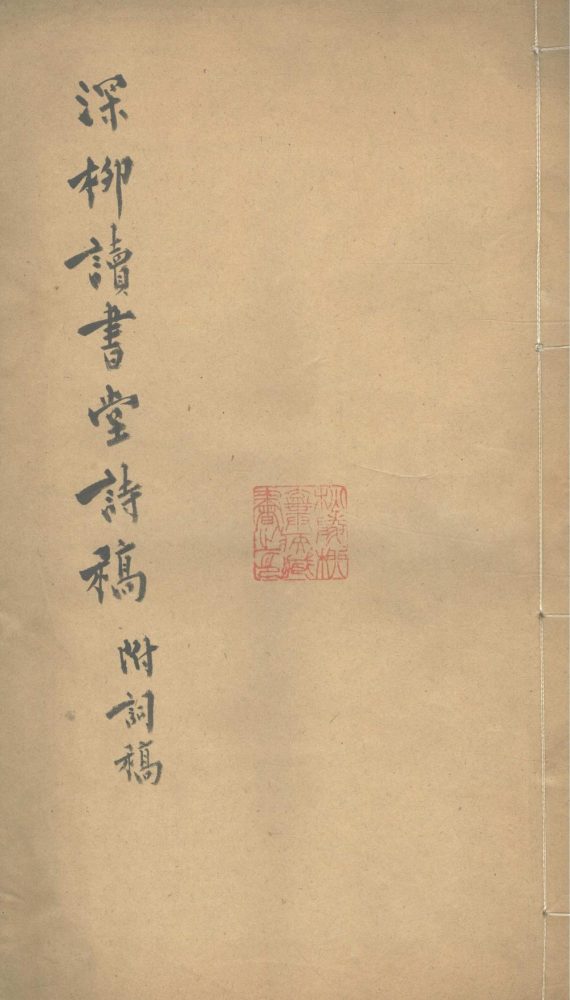 深柳讀書堂詩稿
附詞稿